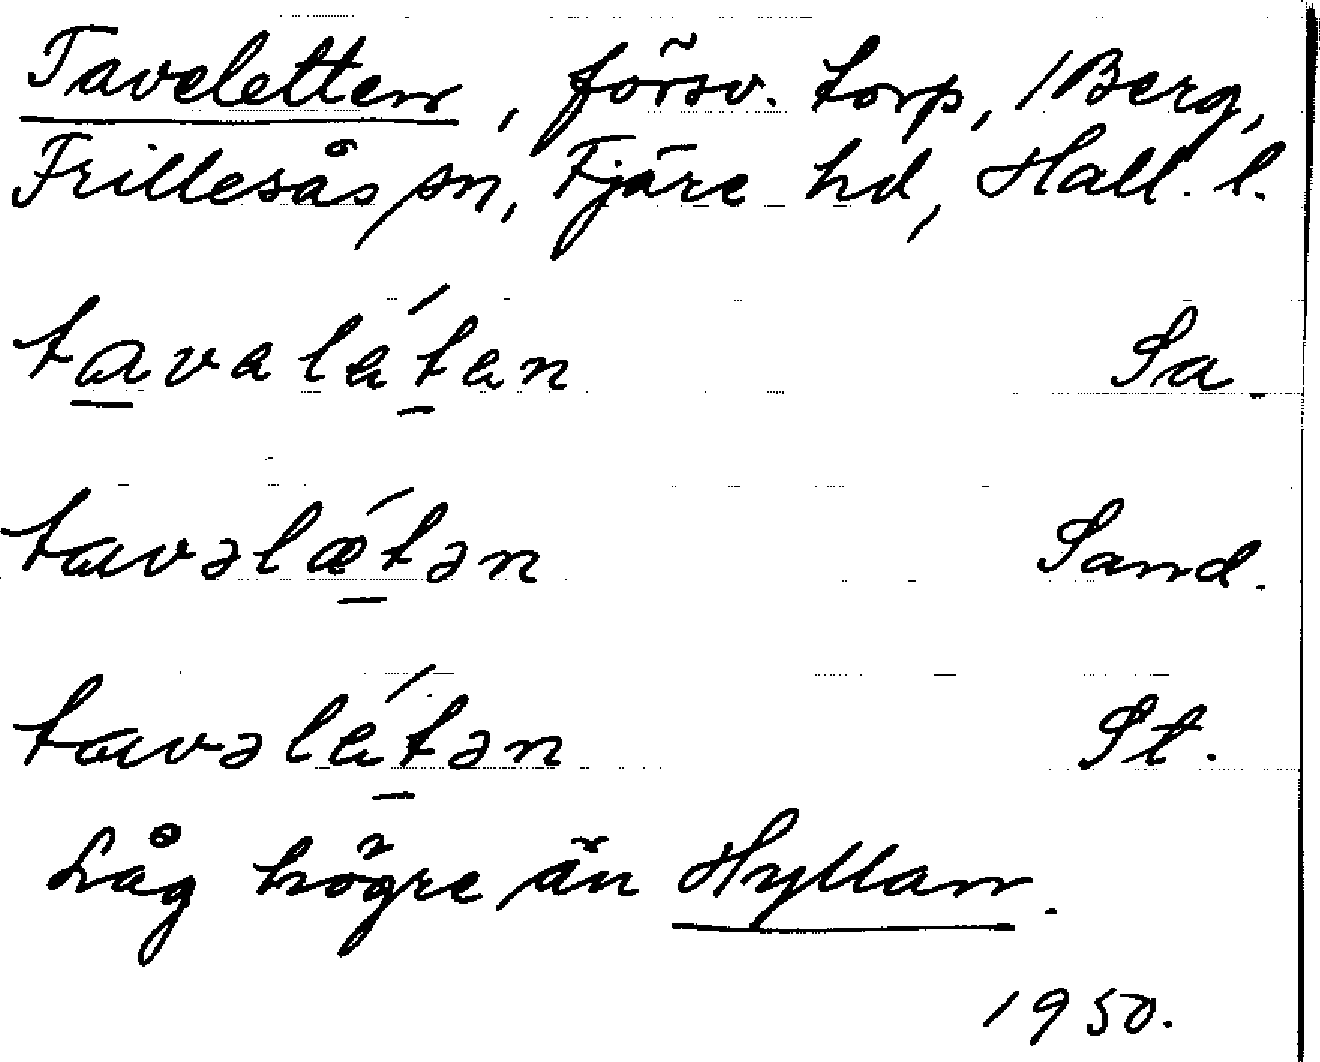 Taveletten, försv. torp, 1 Berg,
Frillesås sn, Fjäre hd, Hall. l.
tavaléten Sa.
tavəlǽtən Sand.
tavəlétən St.
Låg högre än Hyllan.
1950.